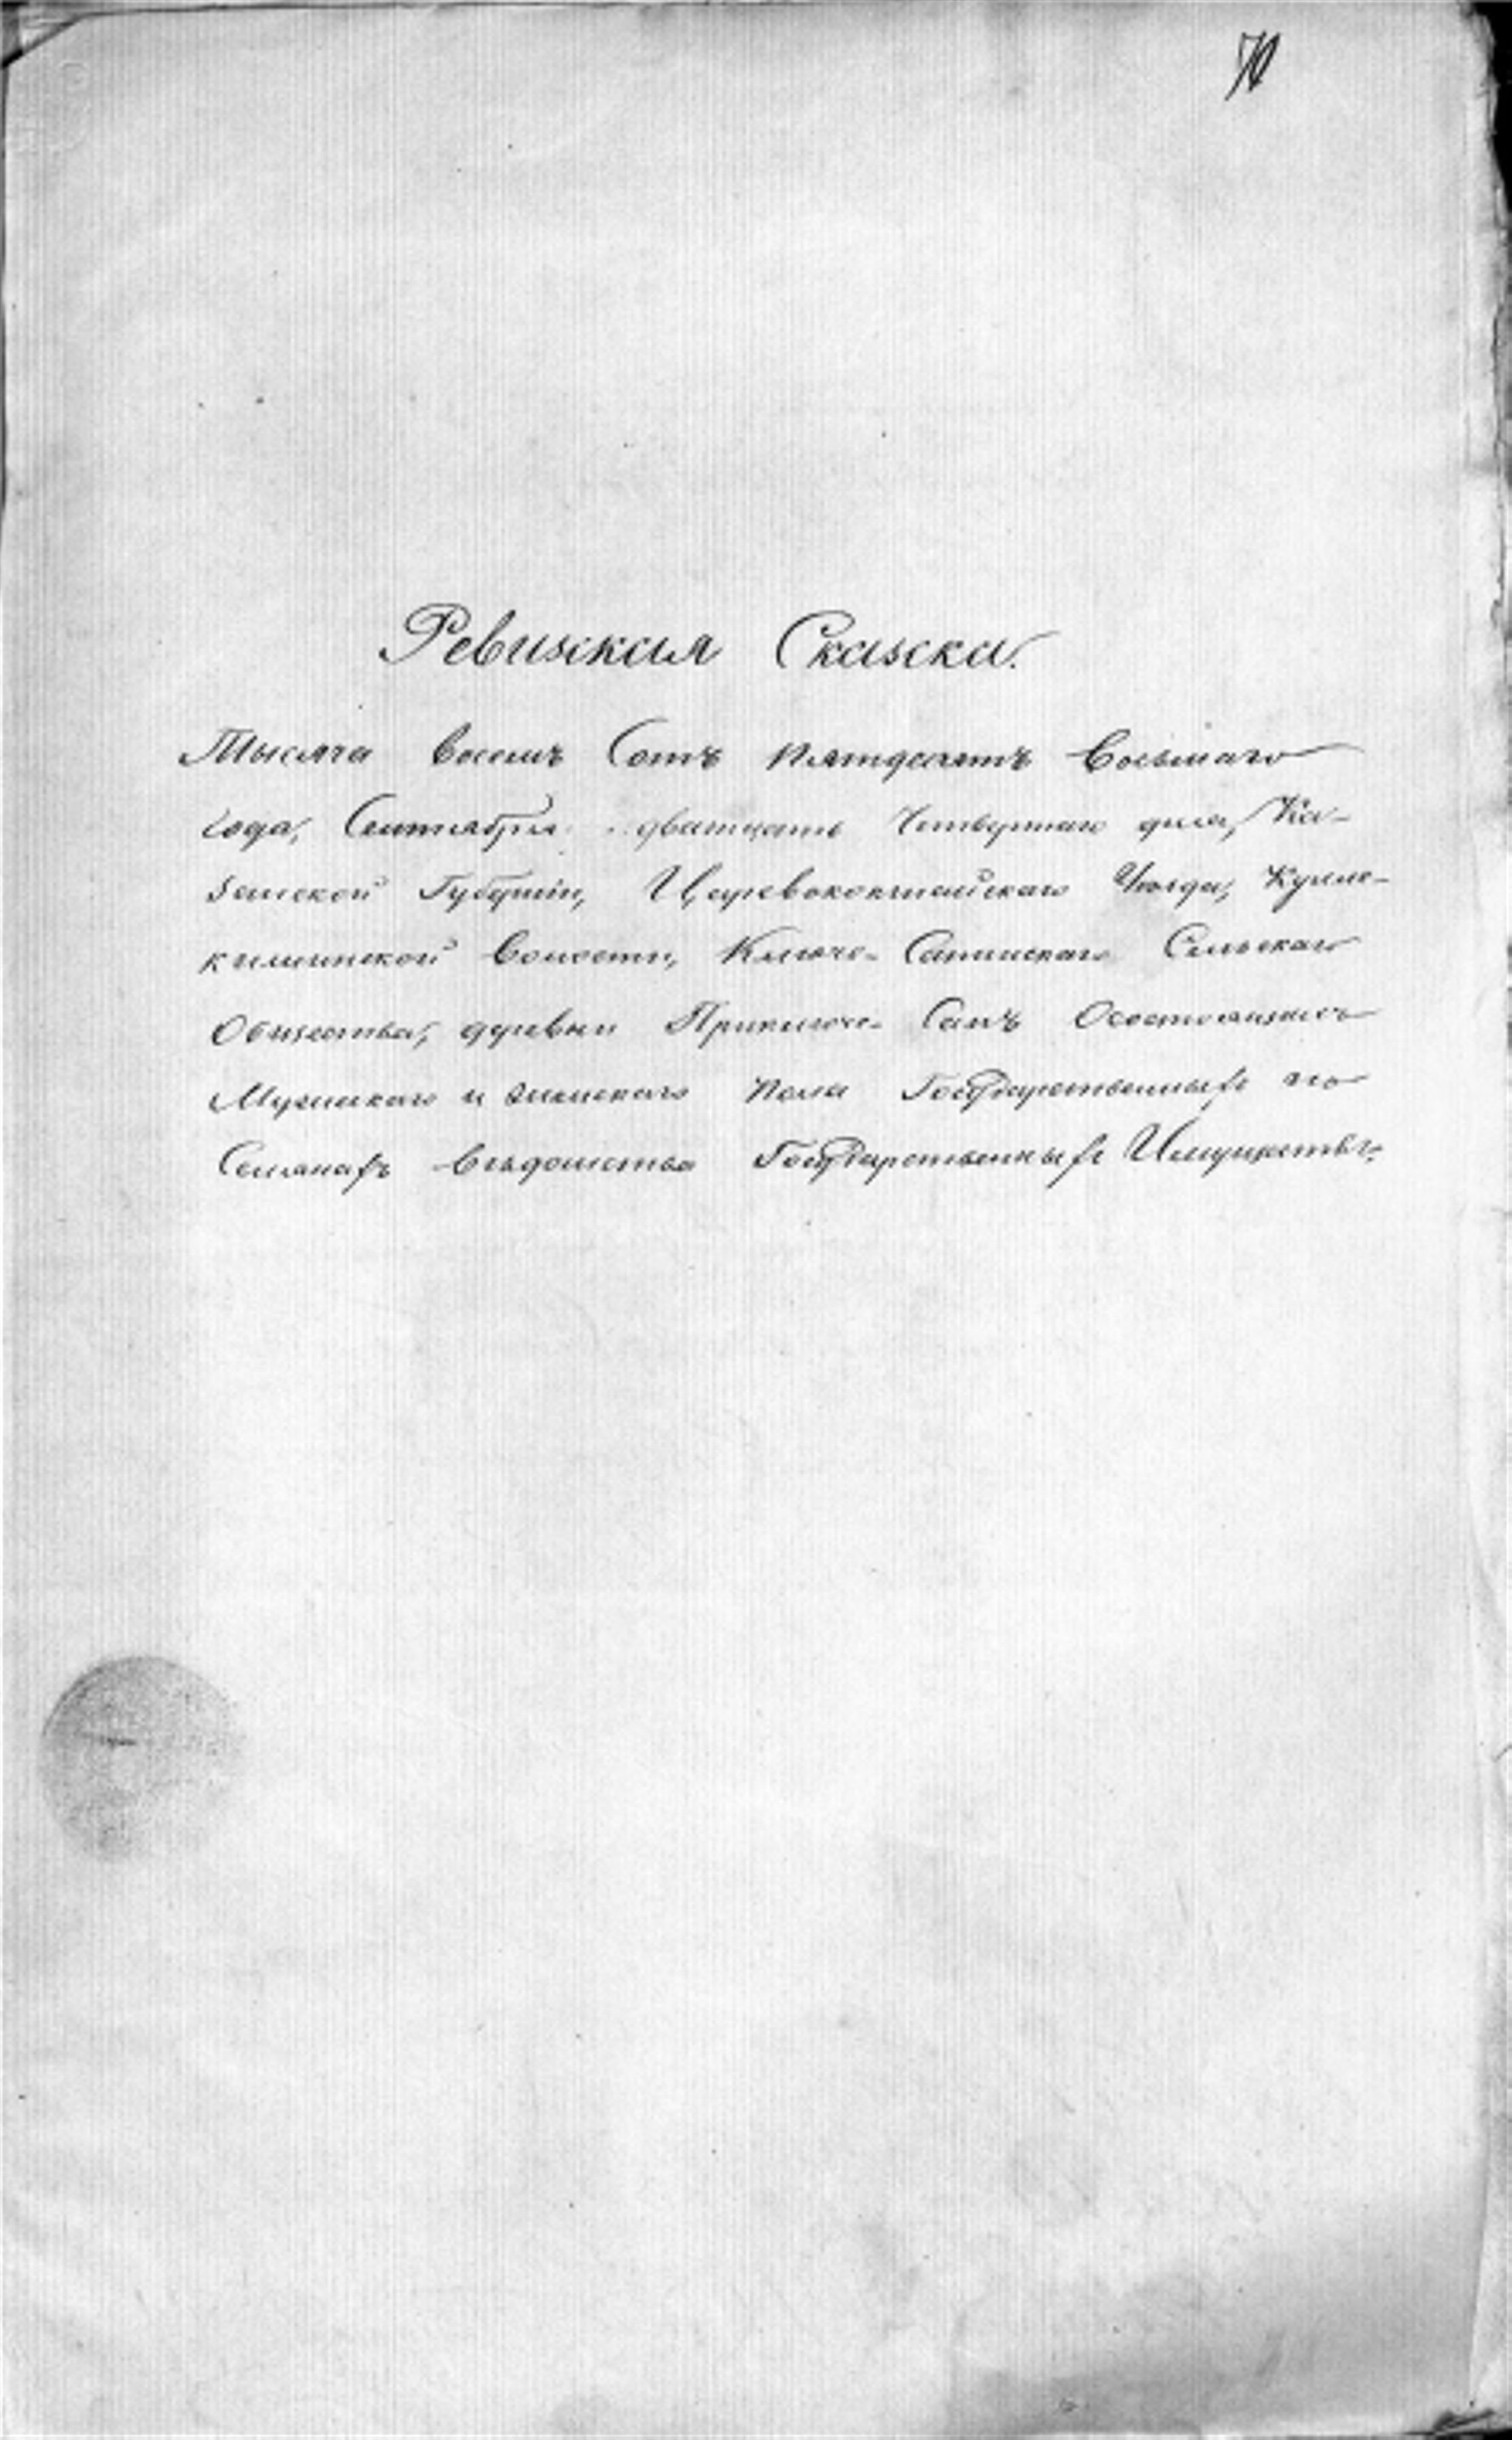 70
Ревизская Сказка.
Тысяча восемь Сотъ пятдесятъ восьмаго
года, Сентября дватцать Четвертаго дня, Ка-
занской Губерніи, Царевококшайскаго Уѣзда, Кулле-
киминской волости, Ключе-Сапинскаго Сельскаго
Общества, деревни Приключе-Сапъ О состоящихъ
Мужскаго и женскаго пола Государственныхъ по
Селянахъ вѣдомства Государственныхъ Имуществъ.